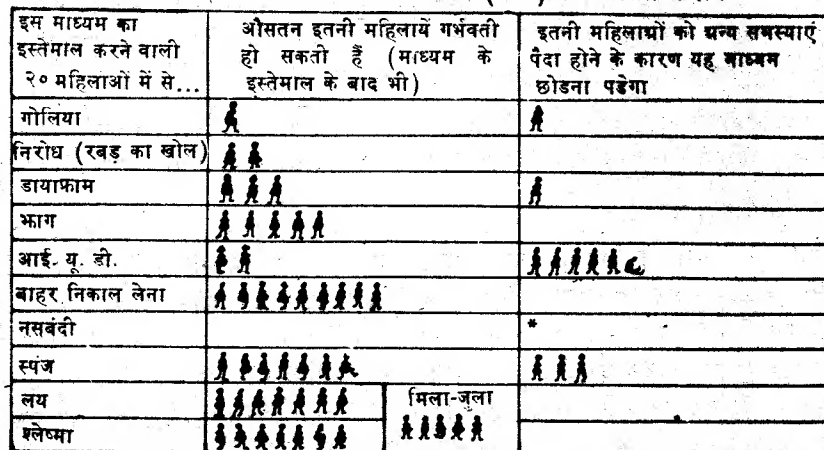 इस माध्यम का
इस्तेमाल करने वाली
२० महिलाओं में से...
औसतन इतनी महिलायें गर्भवती
हो सकती हैं (माध्यम के
इस्तेमाल के बाद भी)
इतनी महिलाओं को अन्य समस्याएं
पैदा होने के कारण यह माध्यम
छोडना पडेगा
गोलिया
निरोध (रबड़ का खोल)
डायाफ्राम
झाग
आई. यू. डी.
बाहर निकाल लेना
नसबंदी
*
स्पंज
लय
मिला-जुला
श्लेष्मा